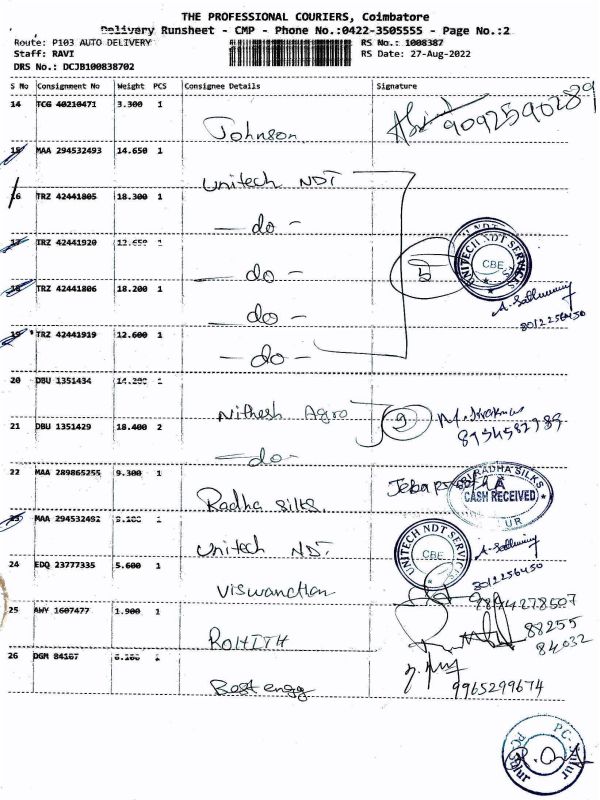 THE PROFESSIONAL COURIERS, Coimbatore
Delivery Runsheet - CMP - Phone No.:0422-3505555 - Page No.:2
Route: P103 AUTO DELIVERY
RS No.: 1008387
Staff: RAVI
RS Date: 27-Aug-2022
DRS No.: DCJB100838702
S No Consignment No Weight PCS Consignee Details Signature
14 TCG 40210471 3.300 1
Johnson 9092590289
15 MAA 294532493 14.650 1
Unitech NDT
16 TRZ 42441805 18.300 1
- do -
17 TRZ 42441920 12.650 1
- do -
5
UNITECH NDT SERVICES CBE
18 TRZ 42441806 18.200 1
- do -
8012256450
19 TRZ 42441919 12.600 1
- do -
20 DBU 1351434 14.200 1
Nithesh Agro
21 DBU 1351429 18.400 2
- do -
22 MAA 289865255 9.300 1
Radha Silks.
RADHA SILKS
CASH RECEIVED
23 MAA 294532492 9.100 1
Unitech NDT
UNITECH NDT SERVICES CBE
8012256450
24 EDQ 23777335 5.600 1
Viswanathan
25 AWY 1607477 1.900 1
ROHITH
88255
84032
26 DGM 84167 1
Best engg
9965299674
PC-Sulur